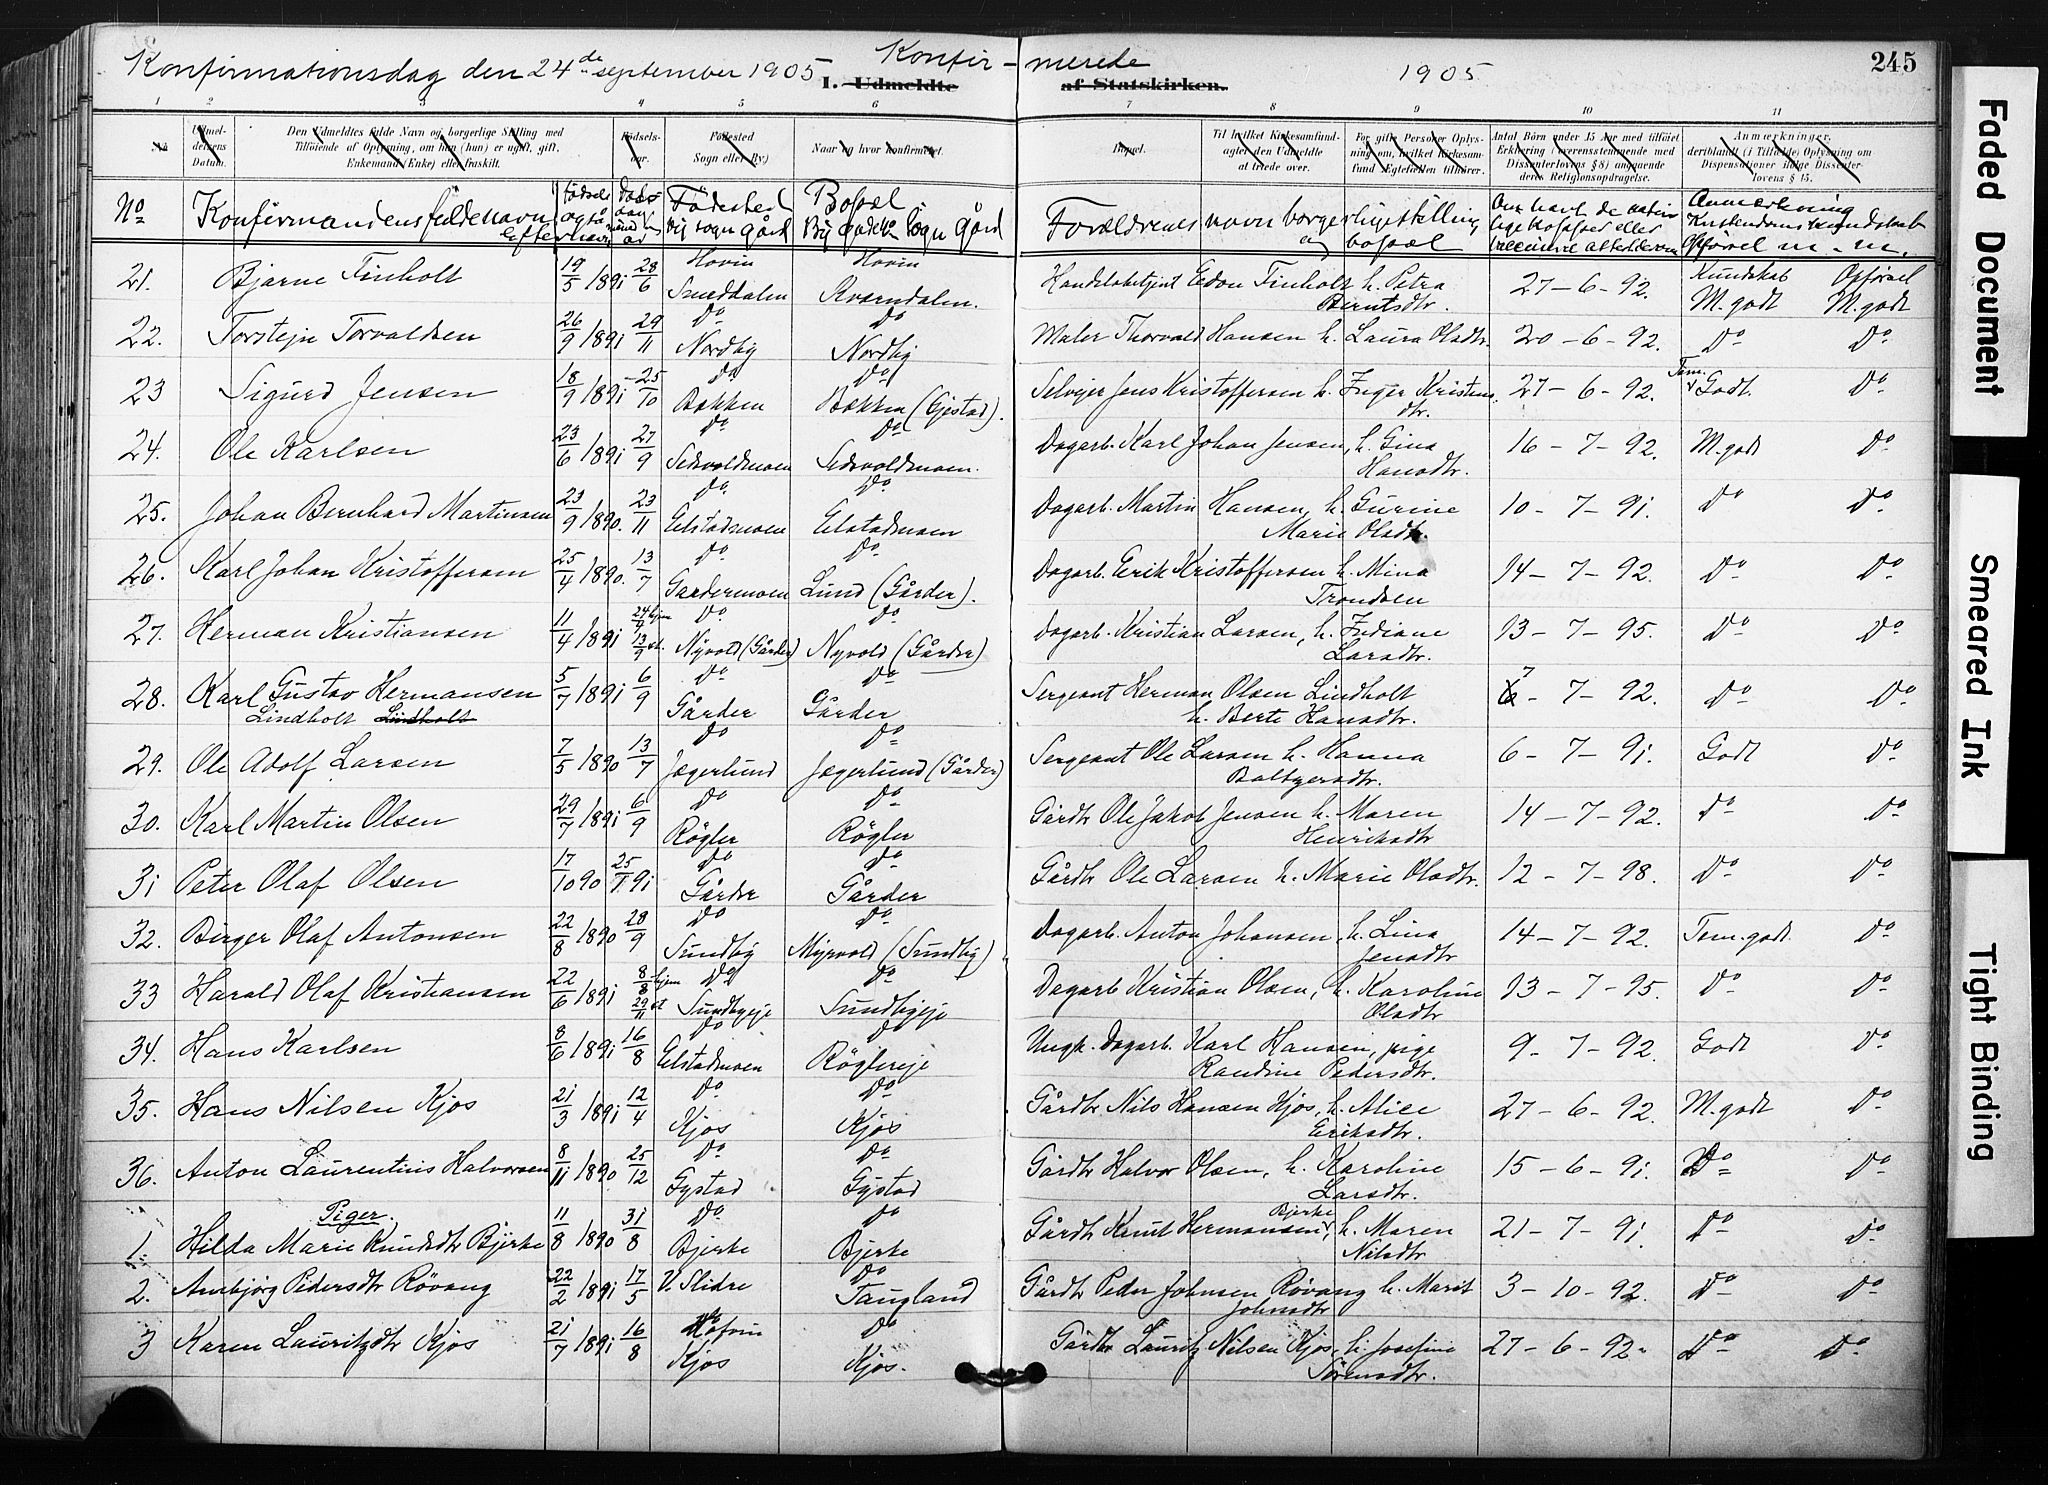 Konfirmationsdag den 24de september 1905 Konfir- merede 1905 245
I. Udmeldte af Statskirken.
1 2 3 4 5 6 7 8 9 10 11
No Udmeldelsens Datum. Den Udmeldtes fulde Navn og borgerlige Stilling med Tilföiende af Oplysning, om han (hun) er ugift, gift, Enkemand (Enke) eller fraskilt. Födselsaar. Födested Sogn eller By) Naar og hvor konfirmeret. Bopæl. Til hvilket Kirkesamfund agter den Udmeldte at træde over. For gifte Personer Oplysning om, hvilket Kirkesamfund Ægtefællen tilhører. Antal Börn under 15 Aar med tilföiet Erklæring (overensstemmende med Dissenterlovens § 8) angaaende deres Religionsopdragelse. Anmærkninger, deriblandt (i Tilfælde) Oplysning om Dispensationer ifølge Dissenterlovens § 15.
No Konfirmandens fulde navn efternavn Födested By sogn gård Bopæl By sogn gård Forældrenes navn borgerlige stilling og bopæl Anmerkning Kristendomskundskab Opførsel m. m.
21. Bjarne Finholt 19/5 1891 28/6 Hovin Smeddalen Hovin Kværndalen. Handelsbetjent Edon Finholt h. Petra Berntsdtr. 27-6-92. Kundskab M. godt Opförsel M. godt
22. Torstejn Torvaldsen 26/9 1891 29/11 Do Nordby Do Nordby Maler Thorvald Hansen h. Laura Olsdtr. 20-6-92. Do Do
23 Sigurd Jensen 18/9 1891 25/10 Do Bakken Do Bakken (Gjestad). Selvejer Jens Kristoffersen h. Inger Kristens dtr. 27-6-92. Tem. Godt. Do
24. Ole Karlsen 23/6 1891 27/9 Do Sedvoldmoen Do Sedvoldmoen. Dagarb. Karl Johan Jensen, h. Gina Hansdtr. 16-7-92. M. godt Do
25. Johan Bernhard Martinsen 23/9 1890. 23/11 Do Elstadmoen Do Elstadmoen Dagarb. Martin Hansen, h. Gurine Marie Olsdtr. 10-7-91. Do Do
26. Karl Johan Kristoffersen 25/4 1890. 13/7 Do Gardermoen Do Lund (Gårder). Dagarb. Erik Kristoffersen h. Mina Trondsen 14-7-92. Do Do
27. Herman Kristiansen 11/4 1891 24/4 hjem 13/9 st. Do Nyvold (Gårder) Do Nyvold (Gårder) Dagarb. Kristian Larsen, h. Indiane Larsdtr. 13-7-95. Do Do
28. Karl Gustav Hermansen Lindholt Lindholt 5/7 1891 6/9 Do Gårder Do Gårder Sergeant Herman Olsen Lindholt h. Berte Hansdtr. 7 6-7-92. Do Do
29. Ole Adolf Larsen 7/5 1890 13/7 Do Jægerlund Do Jægerlund (Gårder) Sergeant Ole Larsen h. Hanna Baltzersdtr. 6-7-91. Godt Do
30. Karl Martin Olsen 29/7 1891 6/9 Do Rögler Do Rögler Gårdbr Ole Jakob Jensen h. Maren Henriksdtr 14-7-92. Do Do
31 Peter Olaf Olsen 17/10 90 25/1 91 Do Gårder Do Gårder Gårdbr Ole Larsen h. Marie Olsdtr. 12-7-98. Do Do
32. Birger Olaf Antonsen 22/8 1890 28/9 Do Sundby Do Myrvold (Sundby) Dagarb. Anton Johansen, h. Lina Jensdtr 14-7-92. Tem. godt. Do
33 Harald Olaf Kristiansen 22/6 1891 8/8 hjem 29/11 st Do Sundbyeje Do Sundbyeje Dagarb Kristian Olsen, h. Karoline Olsdtr 13-7-95. Do Do
34. Hans Karlsen 8/6 1891 16/8 Do Elstadmoen Do Röglereje Ungk. Dagarb. Karl Hansen, pige Randine Pedersdtr. 9-7-92. Godt Do
35. Hans Nilsen Kjos 21/3 1891 12/4 Do Kjos Do Kjos Gårdbr Nils Hansen Kjos, h. Alice Eriksdtr. 27-6-92. M. godt Do
36. Anton Laurentius Halvorsen 8/11 1890 25/12 Do Gystad Do Gystad Gårdbr Halvor Olsen, h. Karoline Larsdtr. 15-6-91. Do Do
Piger.
1. Hilda Marie Knudsdtr Bjerke 11/8 1890 31/8 Do Bjerke Do Bjerke Gårdbr Knut Hermansen Bjerke, h. Maren Nilsdtr 21-7-91. Do Do
2. Ambjörg Pedersdtr Rövang 22/2 1891 17/5 V. Slidre Do Taugland Gårdbr Peder Johnsen Rövang h. Marit Johnsdtr 3-10-92. Do Do
3 Karen Lauritzdtr Kjos 21/7 1891 16/8 Hofvin Kjos Do Kjos. Gårdbr Lauritz Nilsen Kjos, h. Josefine Sörensdtr. 27-6-92. Do Do
Faded Document
Smeared Ink
Tight Binding